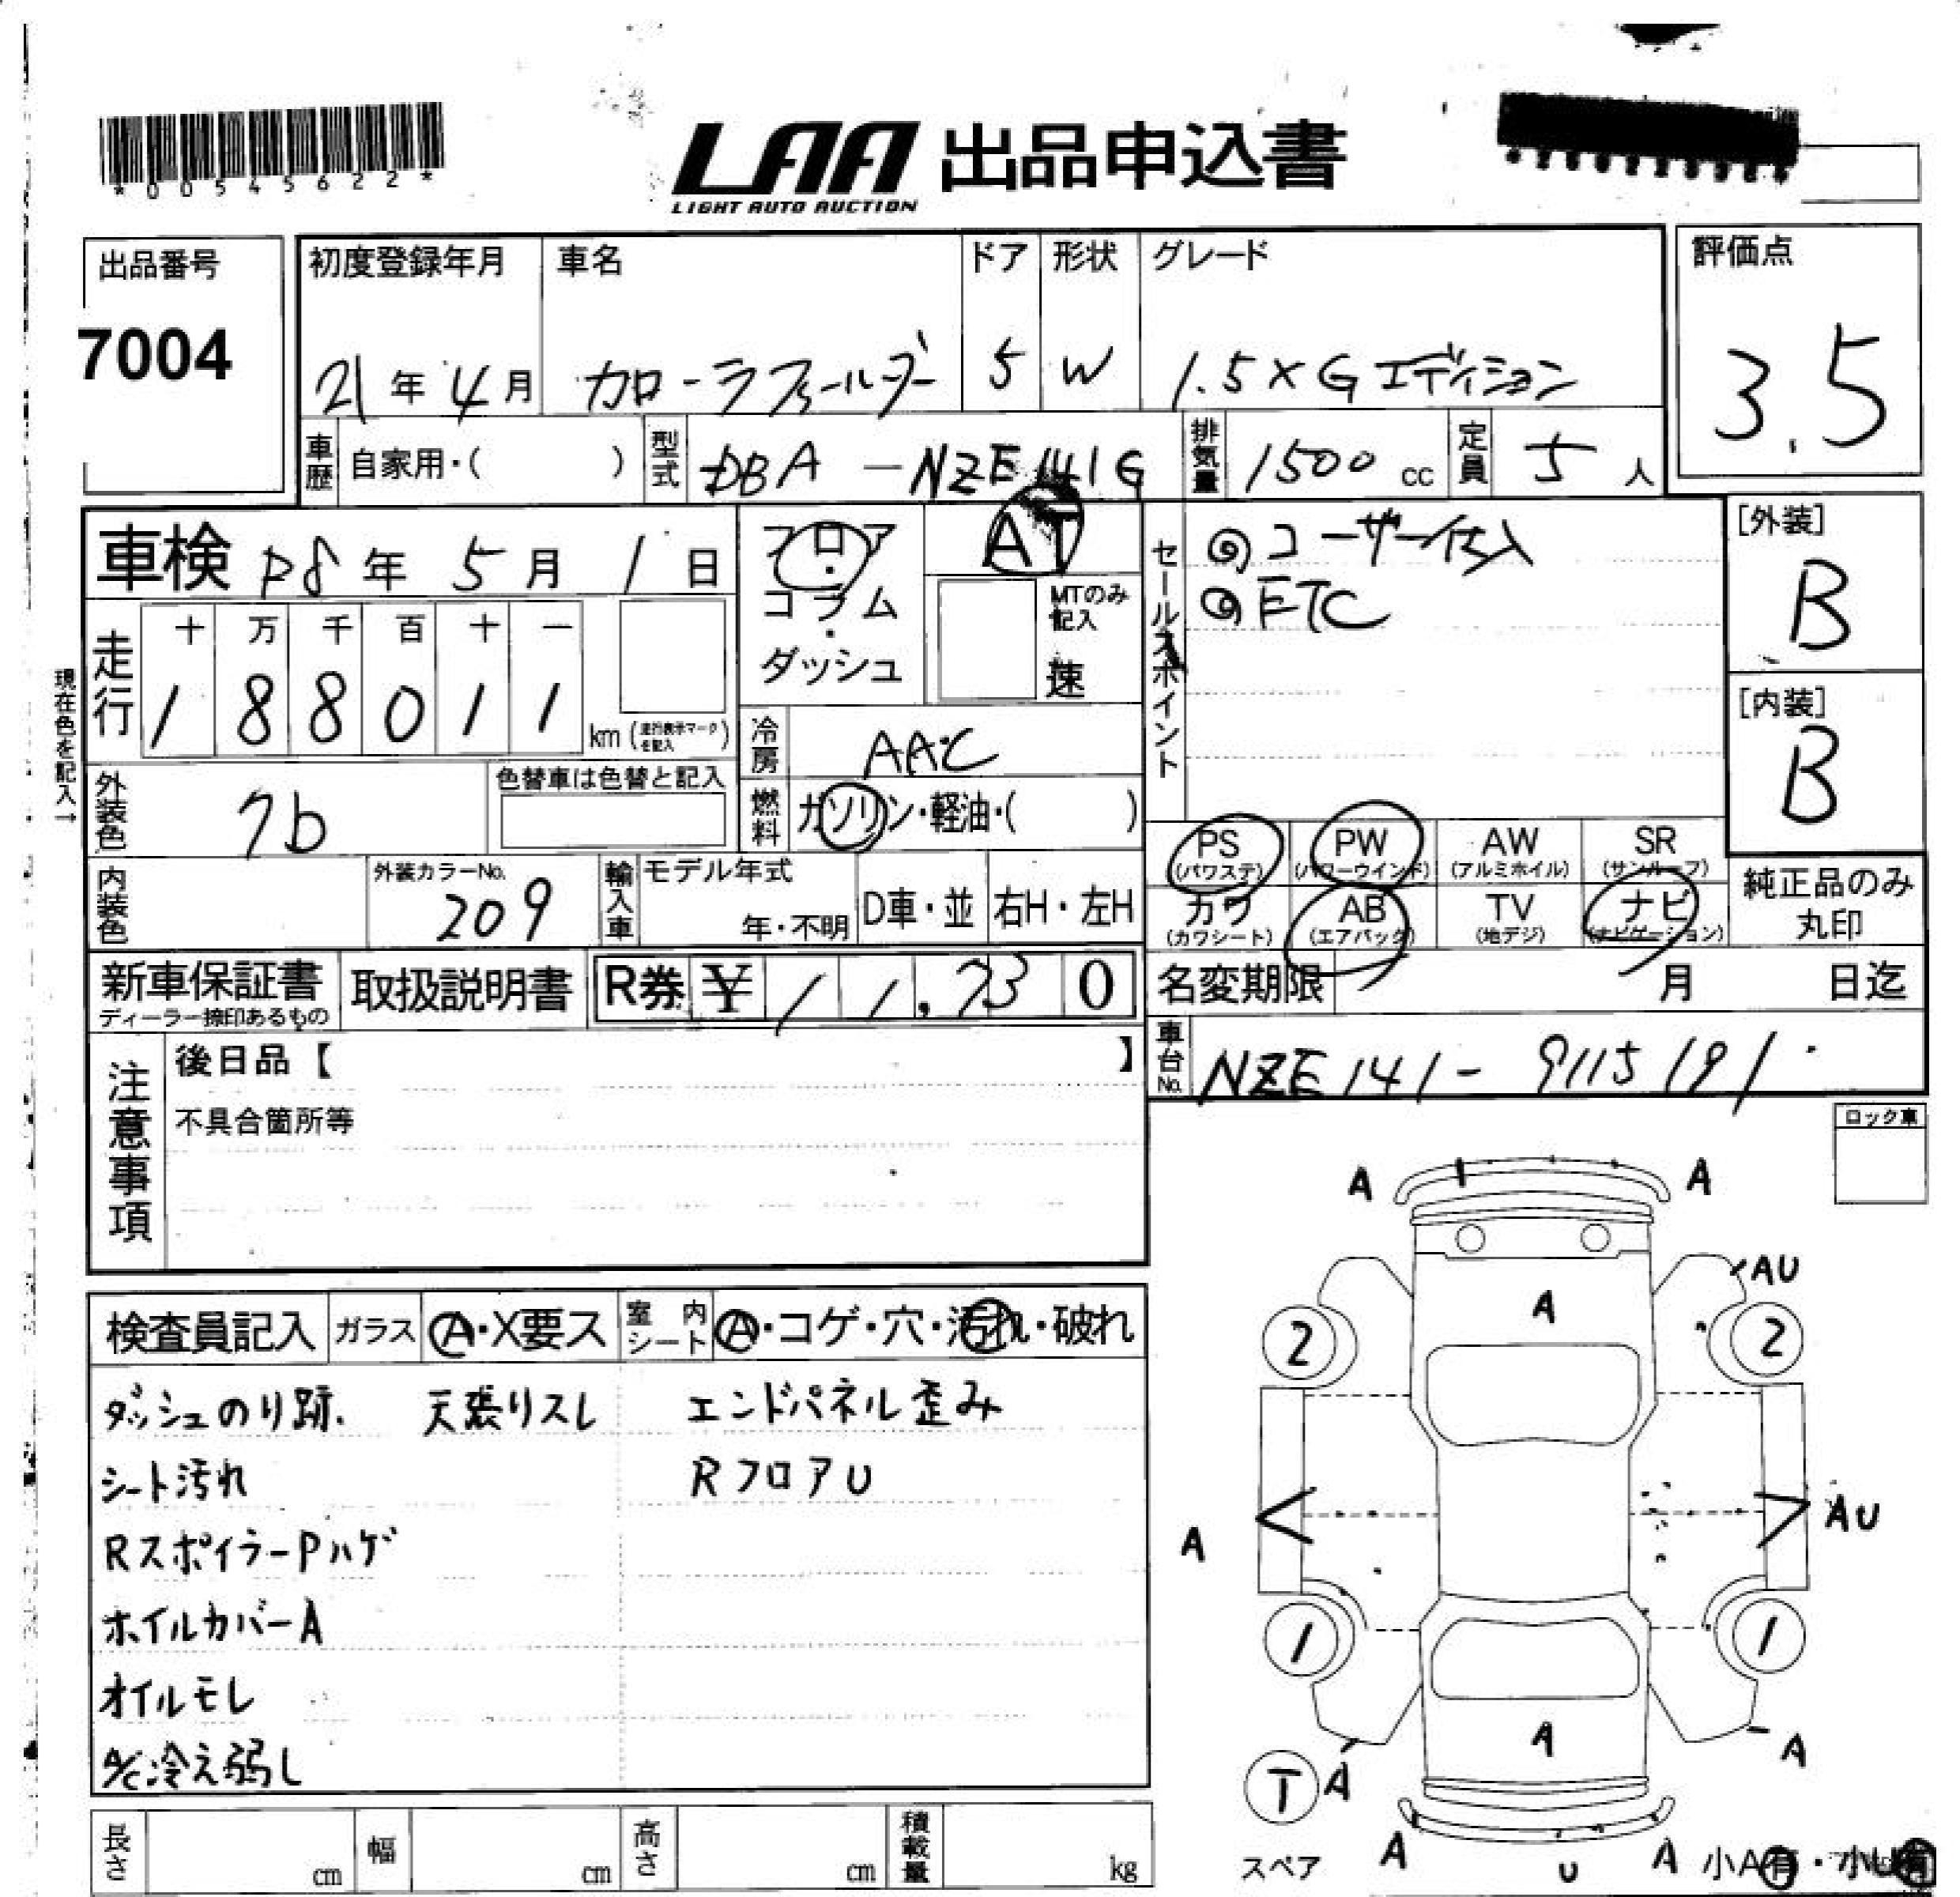 *00545622*
LAA 出品申込書
LIGHT AUTO AUCTION
出品番号
7004
初度登録年月
21年4月
車名
カローラフィールダー
ドア
5
形状
W
グレード
1.5×Gエディション
評価点
3.5
車歴 自家用・( )
型式 DBA-NZE141G
排気量 1500cc
定員 5人
車検 R8年5月1日
走行
十 万 千 百 十 一
1 8 8 0 1 1
km(走行表示マークを記入)
現在色を記入→
フロア・コラム・ダッシュ
AT
MTのみ記入
速
冷房 AAC
燃料 ガソリン・軽油・( )
セールスポイント
◎ユーザー仕入
◎ETC
[外装]
B
[内装]
B
外装色
色替車は色替と記入
内装色
外装カラーNo.
209
輸入車 モデル年式
年・不明
D車・並 右H・左H
PS(パワステ) PW(パワーウインド) AW(アルミホイル) SR(サンルーフ)
カワ(カワシート) AB(エアバック) TV(地デジ) ナビ(ナビゲーション)
純正品のみ丸印
新車保証書
ディーラー捺印あるもの
取扱説明書
R券 ¥ 11,730
名変期限 月 日迄
車台No. NZE141-9115191
注意事項
後日品【 】
不具合箇所等
ロック車
検査員記入 ガラス A・X要ス 室内シート A・コゲ・穴・汚れ・破れ
ダッシュのり跡. 天張りスレ エンドパネル歪み
シート汚れ RフロアU
RスポイラーPハゲ
ホイルカバーA
オイルモレ
A/C冷え弱し
A A
AU
A
2 2
A AU
1 1
A
A
T A
スペア A U A 小A有・小U有
長さ cm 幅 cm 高さ cm 積載量 kg